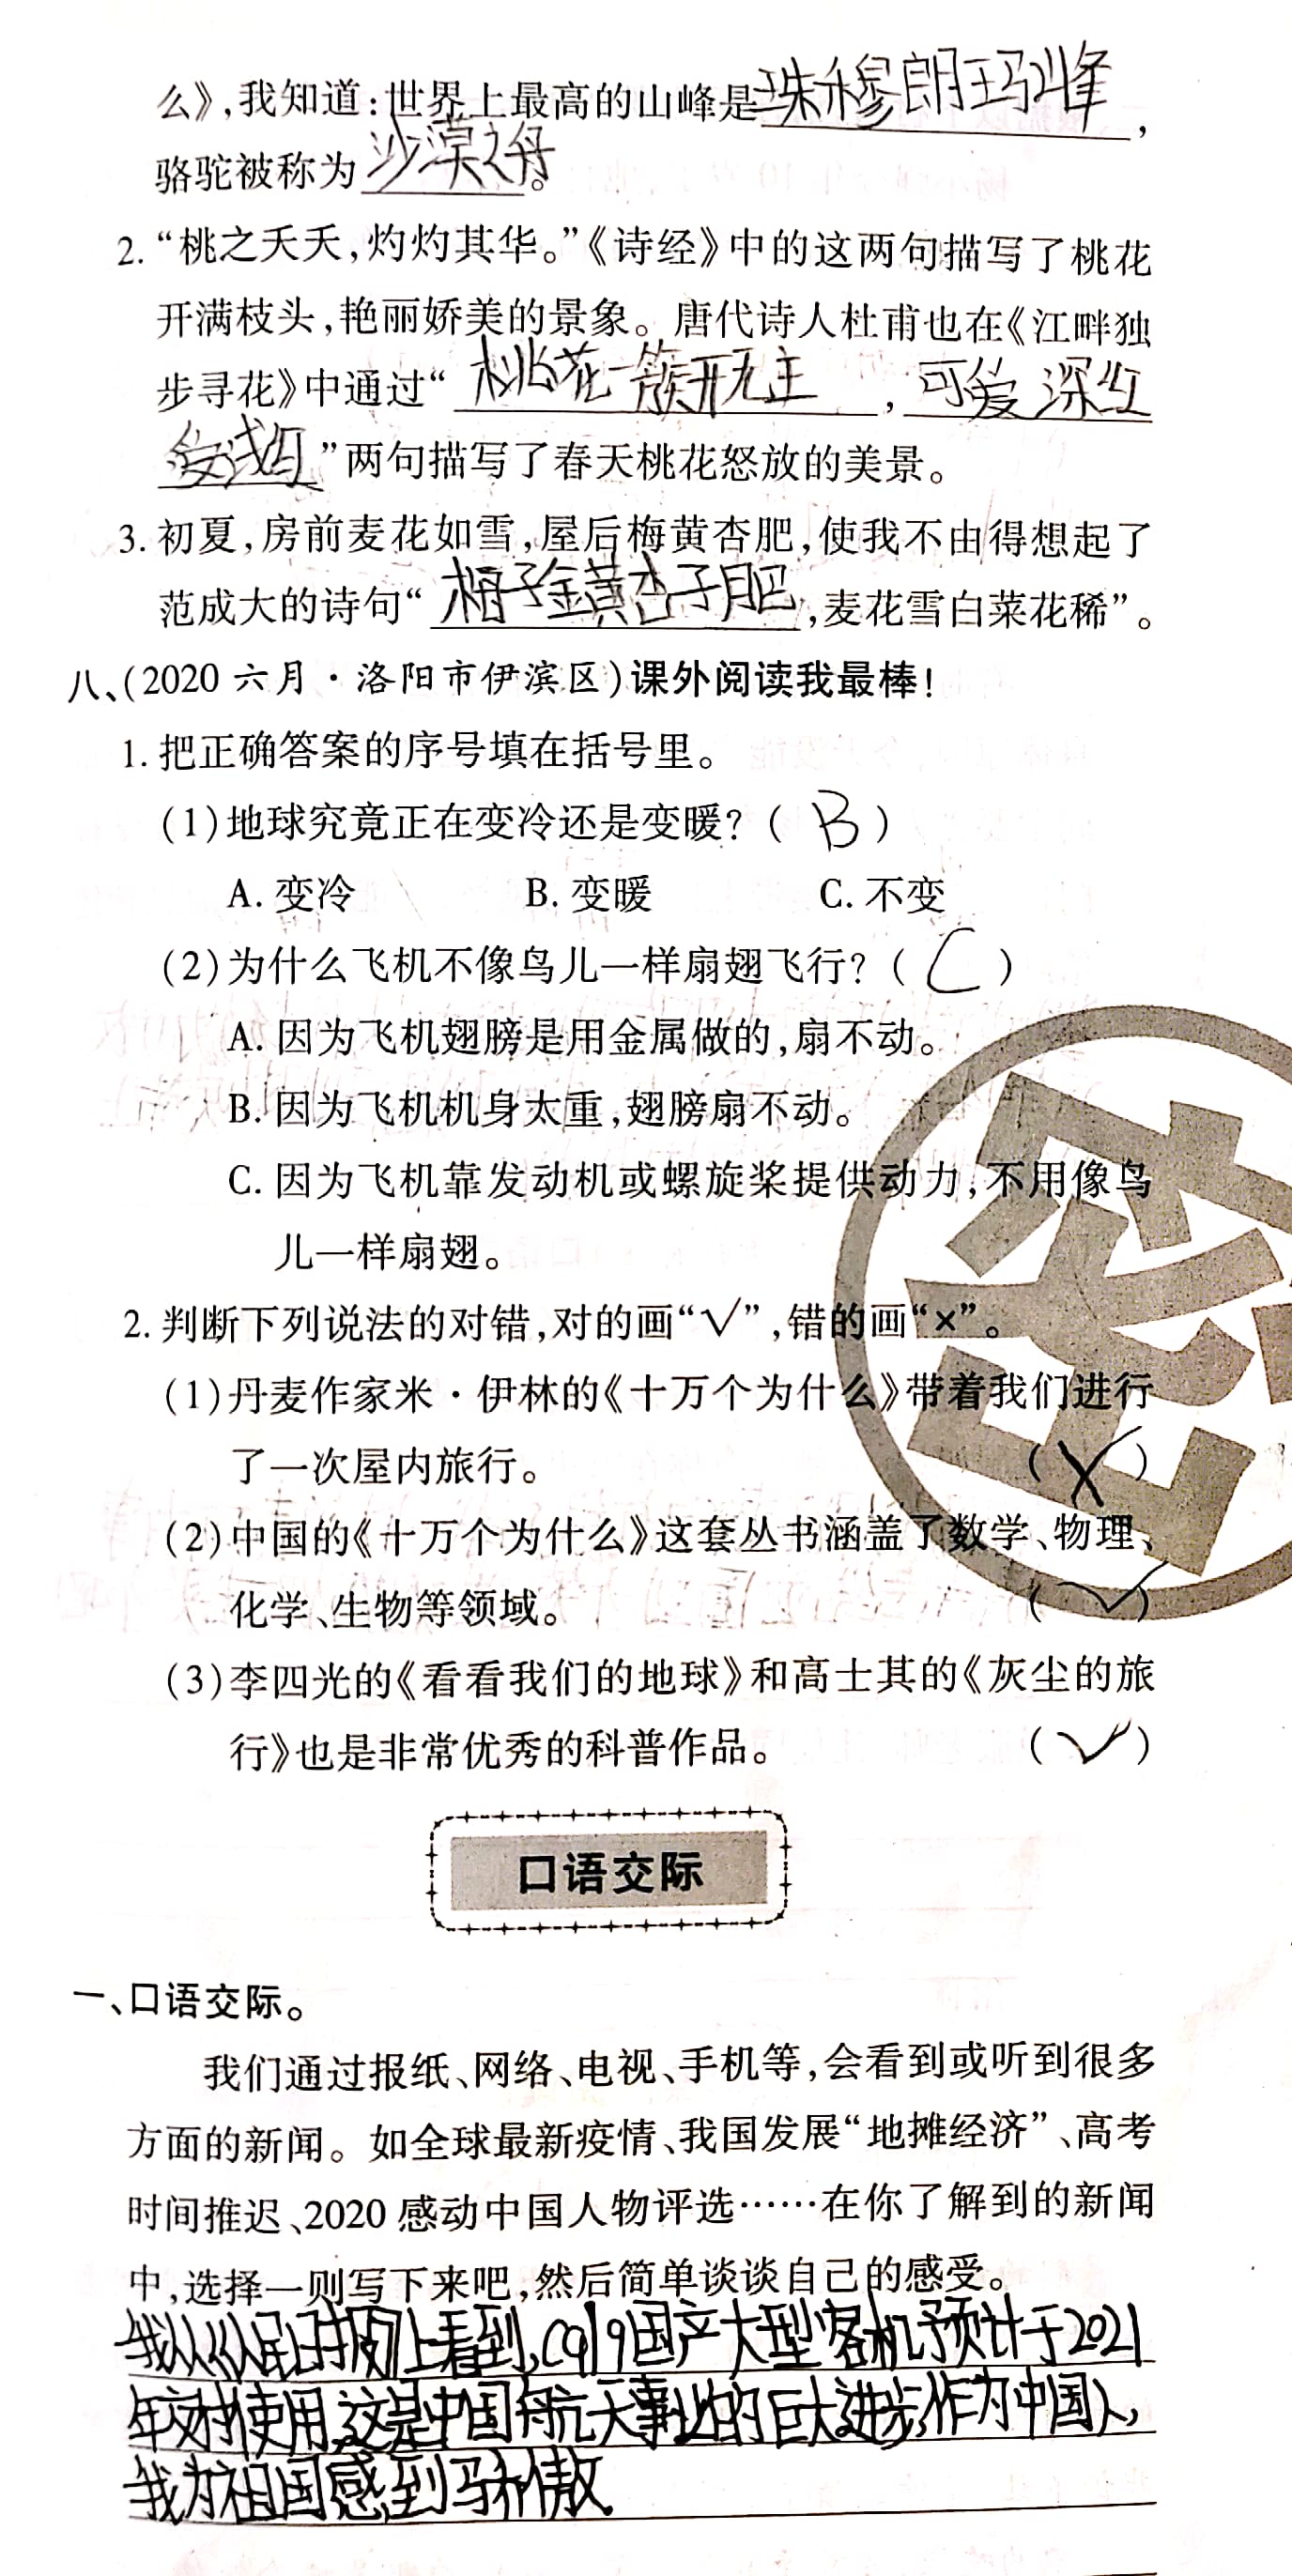 么》,我知道:世界上最高的山峰是珠穆朗玛峰,
骆驼被称为沙漠之舟。
2.“桃之夭夭,灼灼其华。”《诗经》中的这两句描写了桃花
开满枝头,艳丽娇美的景象。唐代诗人杜甫也在《江畔独
步寻花》中通过“桃花一簇开无主,可爱深红
爱浅红”两句描写了春天桃花怒放的美景。
3.初夏,房前麦花如雪,屋后梅黄杏肥,使我不由得想起了
范成大的诗句“梅子金黄杏子肥,麦花雪白菜花稀”。
八、(2020 六月·洛阳市伊滨区)课外阅读我最棒!
1.把正确答案的序号填在括号里。
(1)地球究竟正在变冷还是变暖?( B )
A.变冷 B.变暖 C.不变
(2)为什么飞机不像鸟儿一样扇翅飞行?( C )
A.因为飞机翅膀是用金属做的,扇不动。
B.因为飞机机身太重,翅膀扇不动。
C.因为飞机靠发动机或螺旋桨提供动力,不用像鸟
儿一样扇翅。
2.判断下列说法的对错,对的画“√”,错的画“×”。
(1)丹麦作家米·伊林的《十万个为什么》带着我们进行
了一次屋内旅行。 ( × )
(2)中国的《十万个为什么》这套丛书涵盖了数学、物理、
化学、生物等领域。 ( √ )
(3)李四光的《看看我们的地球》和高士其的《灰尘的旅
行》也是非常优秀的科普作品。 ( √ )
口语交际
一、口语交际。
我们通过报纸、网络、电视、手机等,会看到或听到很多
方面的新闻。如全球最新疫情、我国发展“地摊经济”、高考
时间推迟、2020 感动中国人物评选……在你了解到的新闻
中,选择一则写下来吧,然后简单谈谈自己的感受。
我从《人民日报》上看到,C919国产大型客机预计于2021
年交付使用,这是中国航天事业的巨大进步,作为中国人,
我为祖国感到骄傲.